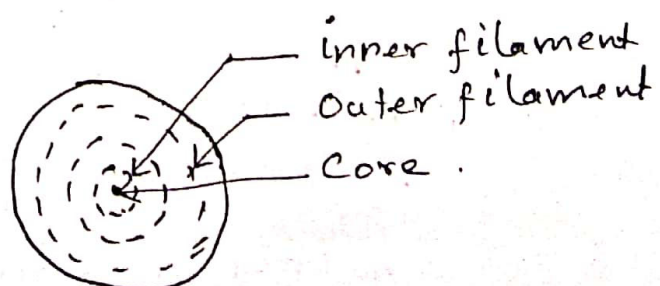 inner filament
outer filament
Core .